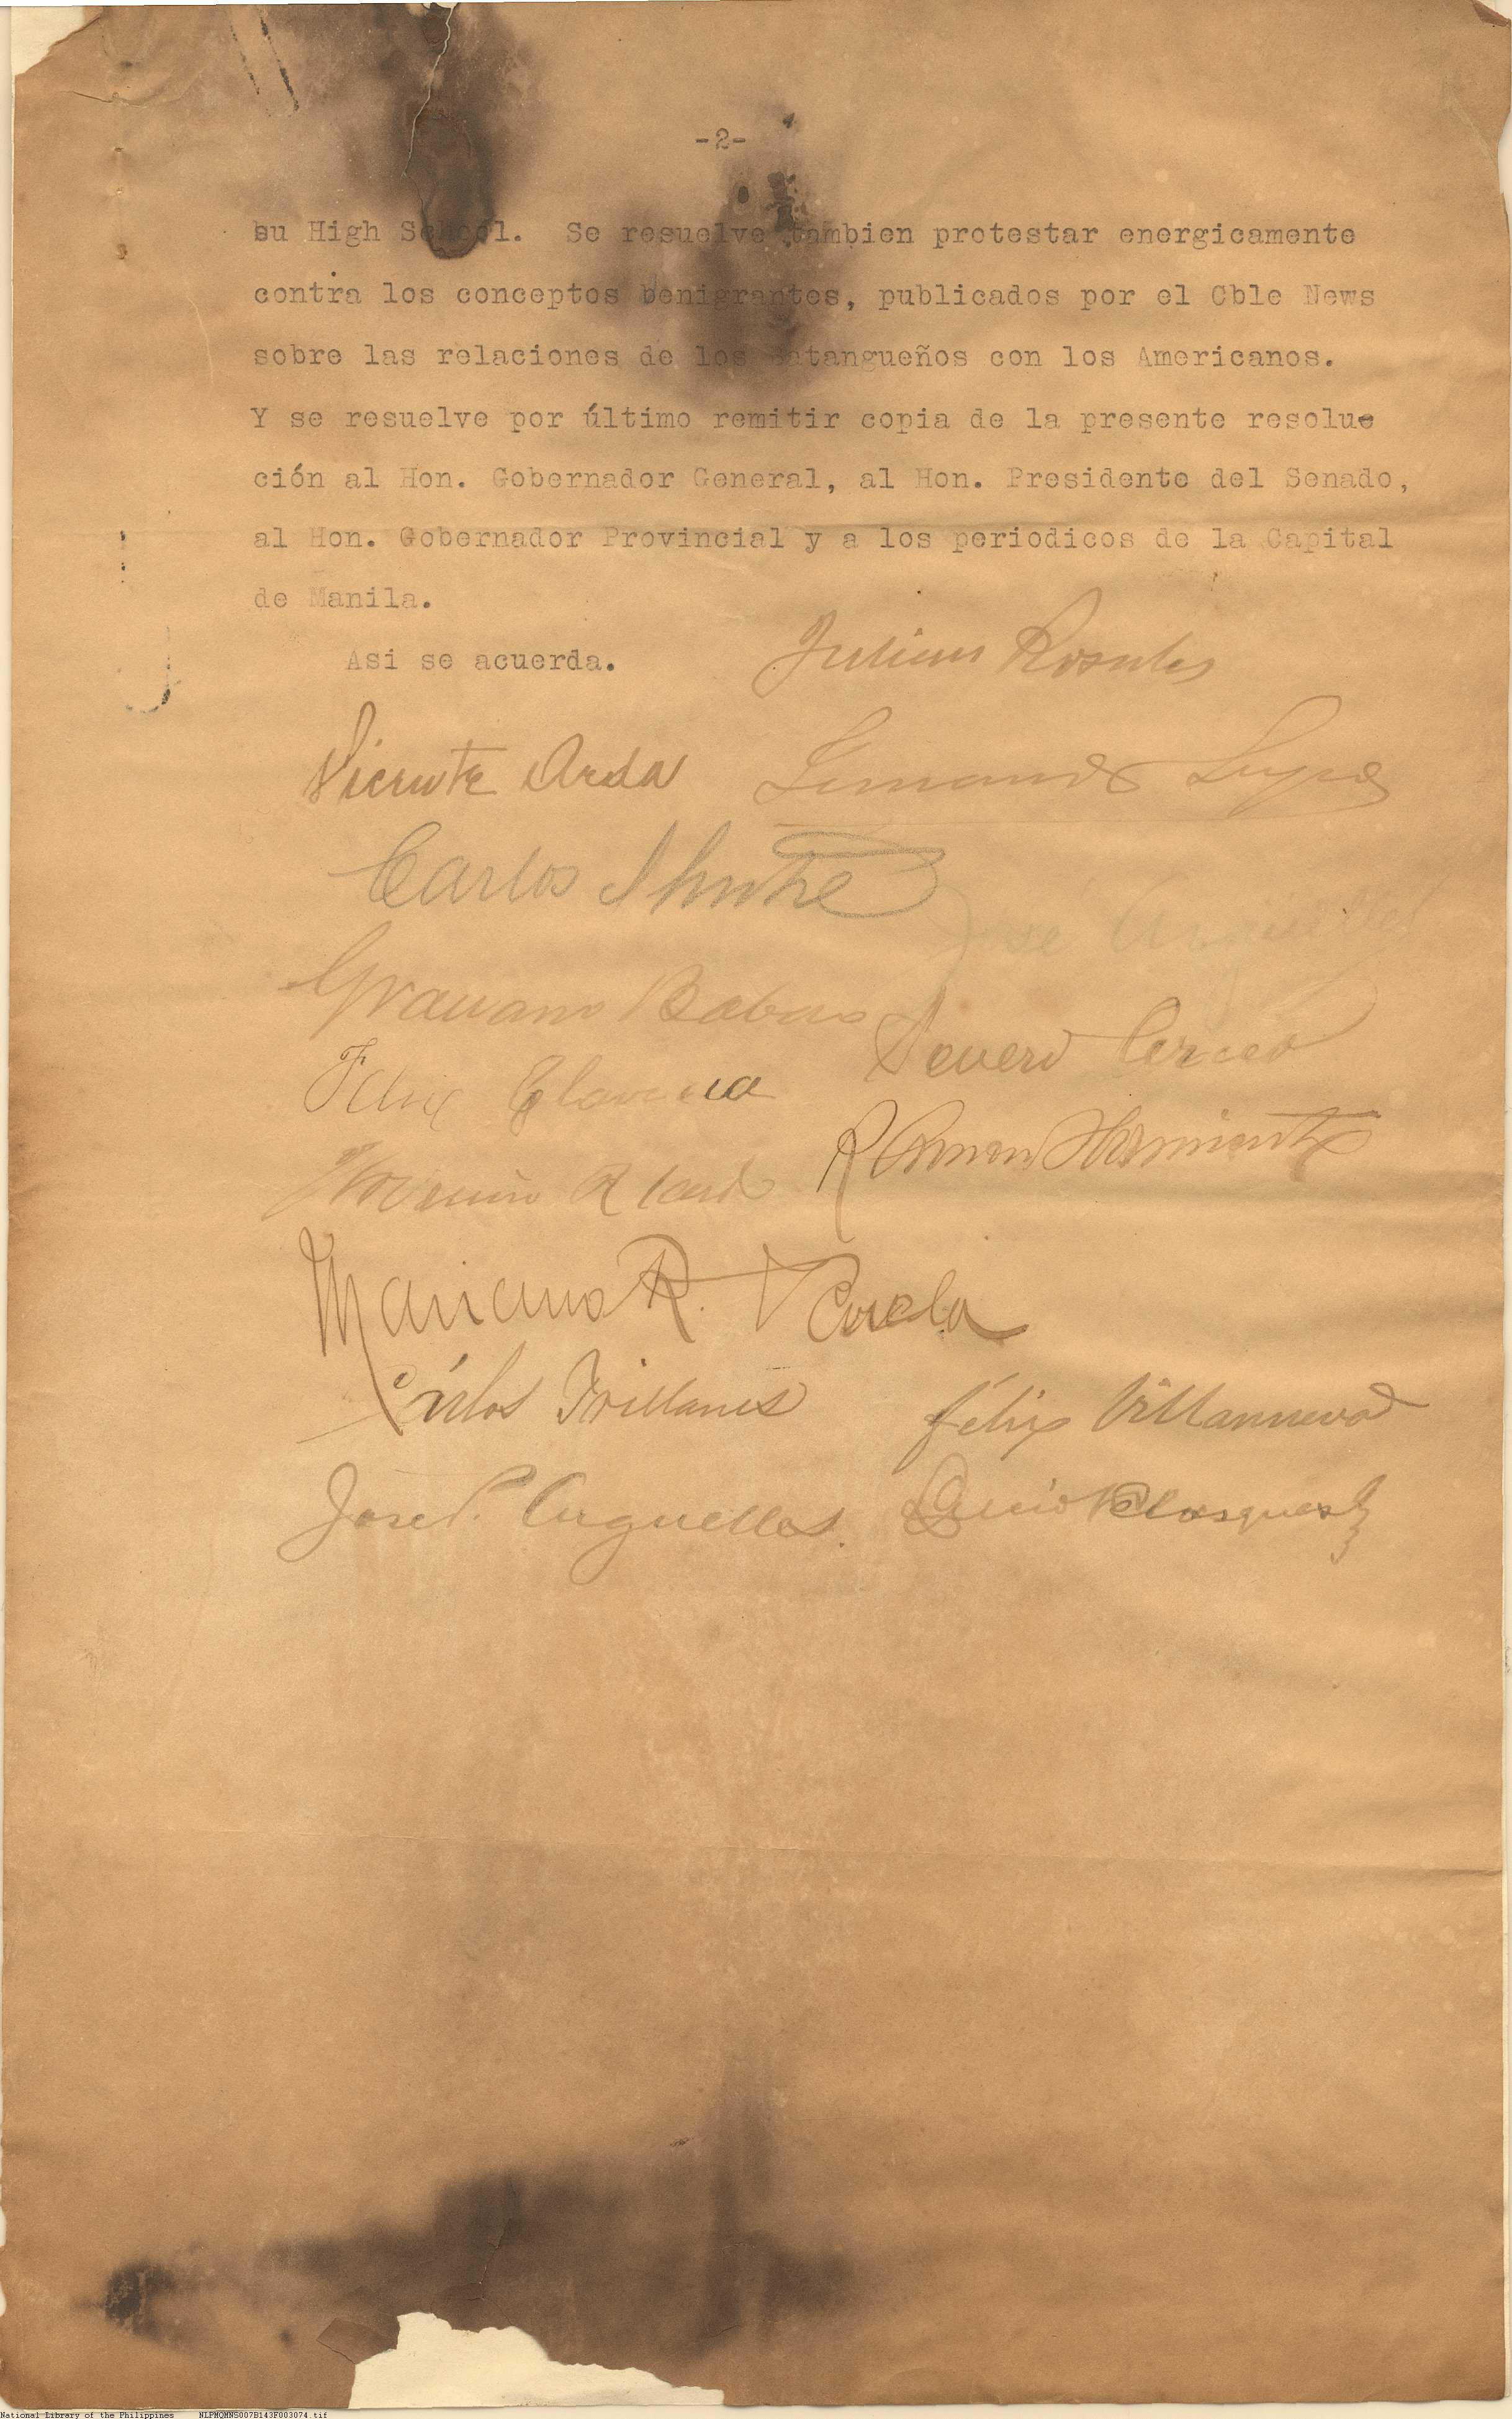 -2-
su High School. Se resuelve tambien protestar energicamente
contra los conceptos benigrantes, publicados por el Cble News
sobre las relaciones de los Batangueños con los Americanos.
Y se resuelve por último remitir copia de la presente resolue
ción al Hon. Gobernador General, al Hon. Presidente del Senado,
al Hon. Gobernador Provincial y a los periodicos de la Capital
de Manila.
Asi se acuerda.
Julian Rosales
Vicente
Carlos
José Arguelles
Graciano
Severo
Felix
Roman
Mariano R.
Cárlos Trillanes
Félix Villanueva
Jose P. Arguelles.
Lucio Velasquez
National Library of the Philippines NLPMQMNS007B143F003074.tif